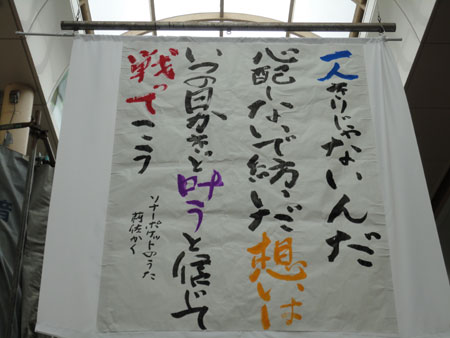 一人きりじゃないんだ
心配しないで紡いだ想いは
いつの日かきっと叶うと信じて
戦ってこう
ソナーポケットのうた